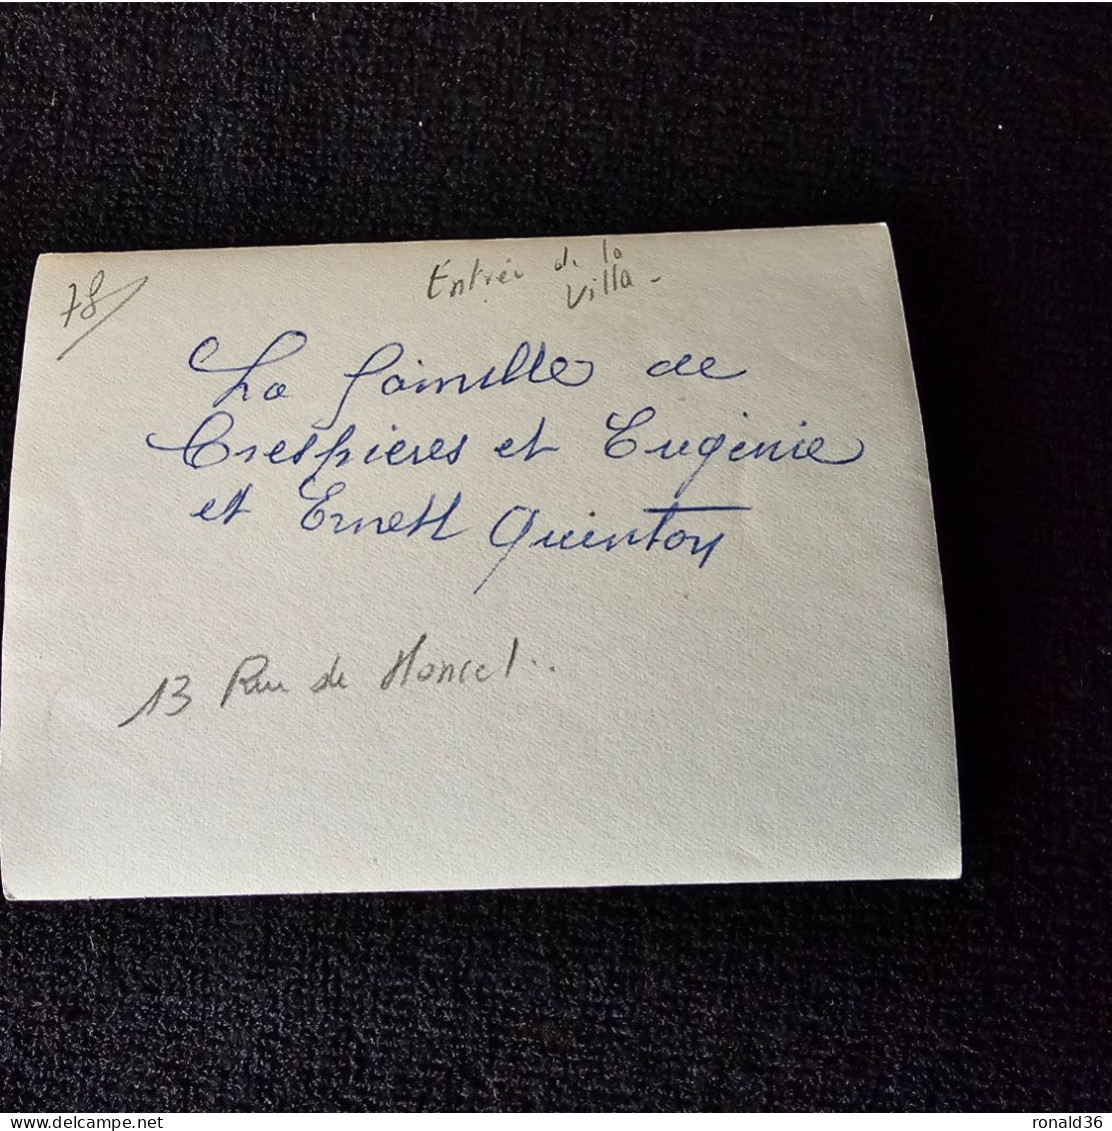 78
Entrée de la
Villa -
La famille de
Crespieres et Eugenie
et Ernest Quinton
13 Rue de Moncel..
delcampe.net
ronald36